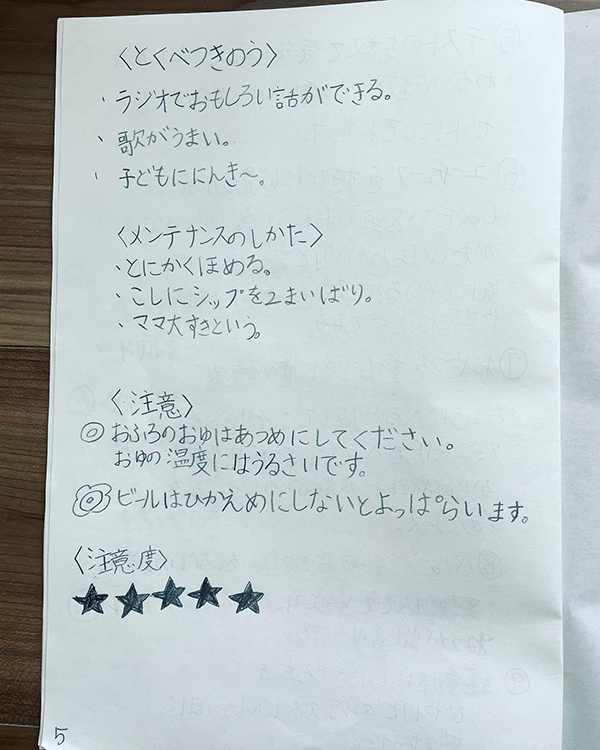 〈とくべつきのう〉
・ラジオでおもしろい話ができる。
・歌がうまい。
・子どもににんき〜。
〈メンテナンスのしかた〉
・とにかくほめる。
・こしにシップを2まいばり。
・ママ大すきという。
〈注意〉
◎おふろのおゆはあつめにしてください。
おゆの温度にはうるさいです。
◎ビールはひかえめにしないとよっぱらいます。
〈注意度〉
★★★★★
5